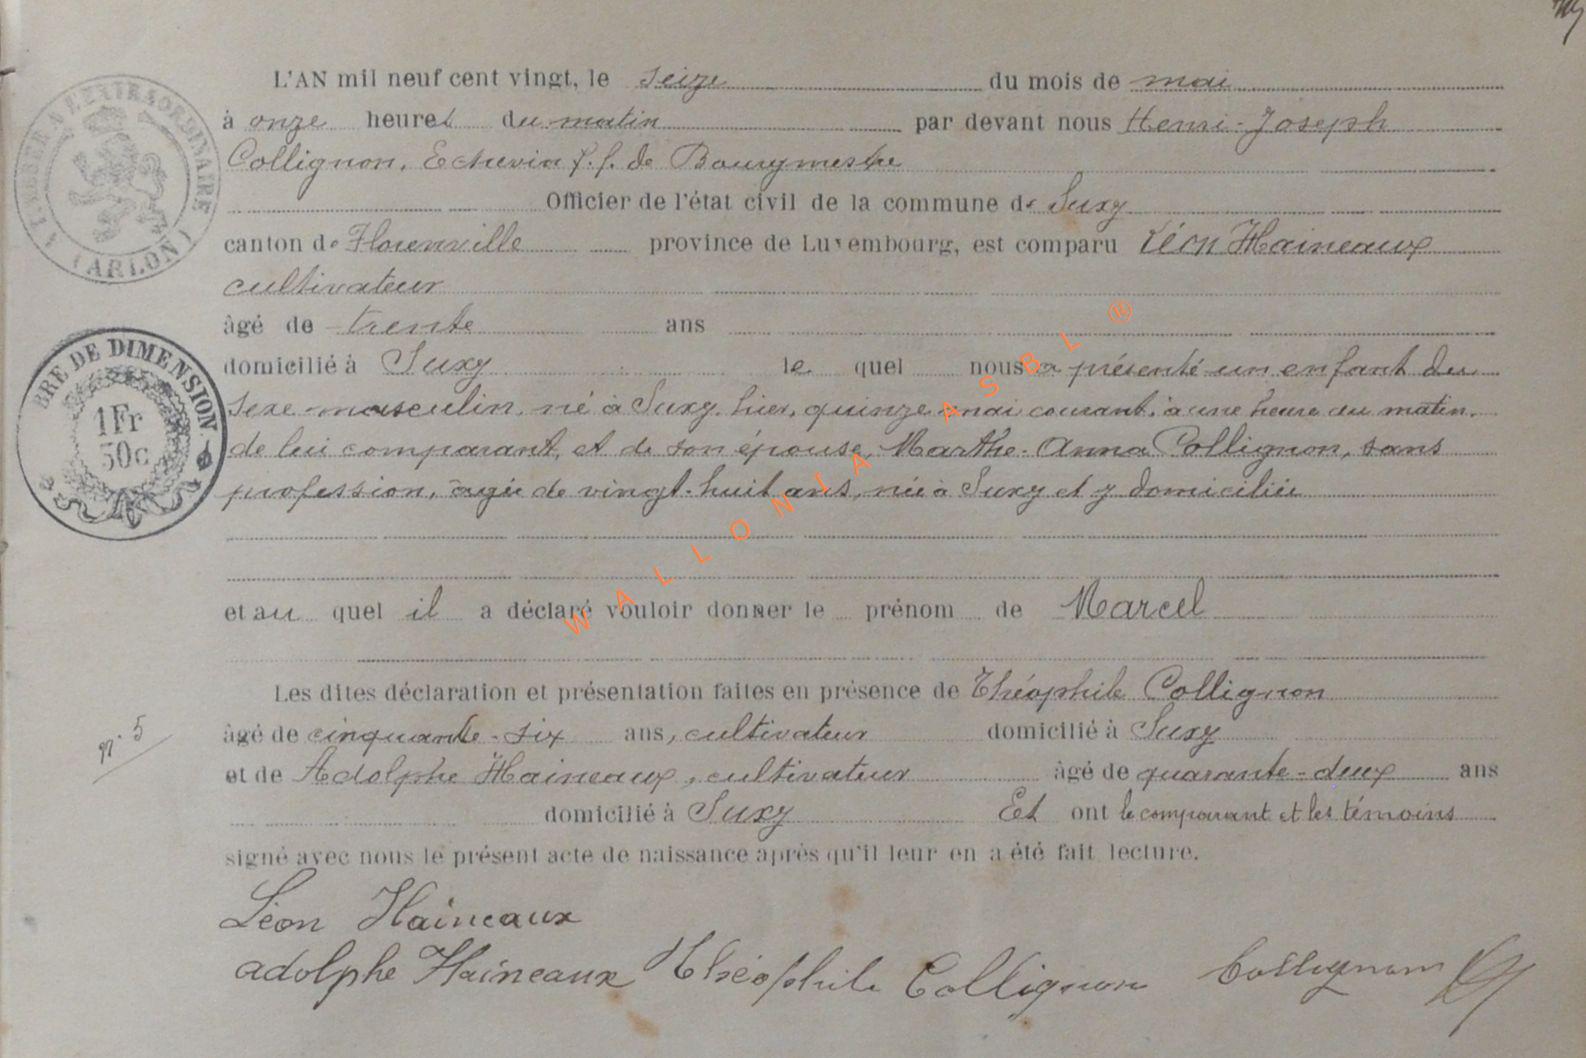 L'AN mil neuf cent vingt, le seize du mois de mai
à onze heures du matin par devant nous Henri-Joseph
Collignon, Echevin f.f. de Bourgmestre
Officier de l'état civil de la commune de Suxy
canton de Florenville province de Luxembourg, est comparu Léon Haineaux
cultivateur
âgé de trente ans
domicilié à Suxy le quel nous a présenté un enfant du
sexe masculin, né à Suxy, hier, quinze mai courant, à une heure du matin,
de lui comparant, et de son épouse, Marthe-Anna Collignon, sans
profession, âgée de vingt-huit ans, née à Suxy et y domiciliée
et au quel il a déclaré vouloir donner le prénom de Marcel
Les dites déclaration et présentation faites en présence de Théophile Collignon
âgé de cinquante-six ans, cultivateur domicilié à Suxy
et de Adolphe Haineaux, cultivateur âgé de quarante-deux ans
domicilié à Suxy Et ont le comparant et les témoins
signé avec nous le présent acte de naissance après qu'il leur en a été fait lecture.
Léon Haineaux
adolphe Haineaux Théophile Collignon Collignon
TIMBRER A L'EXTRAORDINAIRE
(ARLON)
BRE DE DIMENSION
1Fr
50c
n. 5
WALLONIA ASBL ®